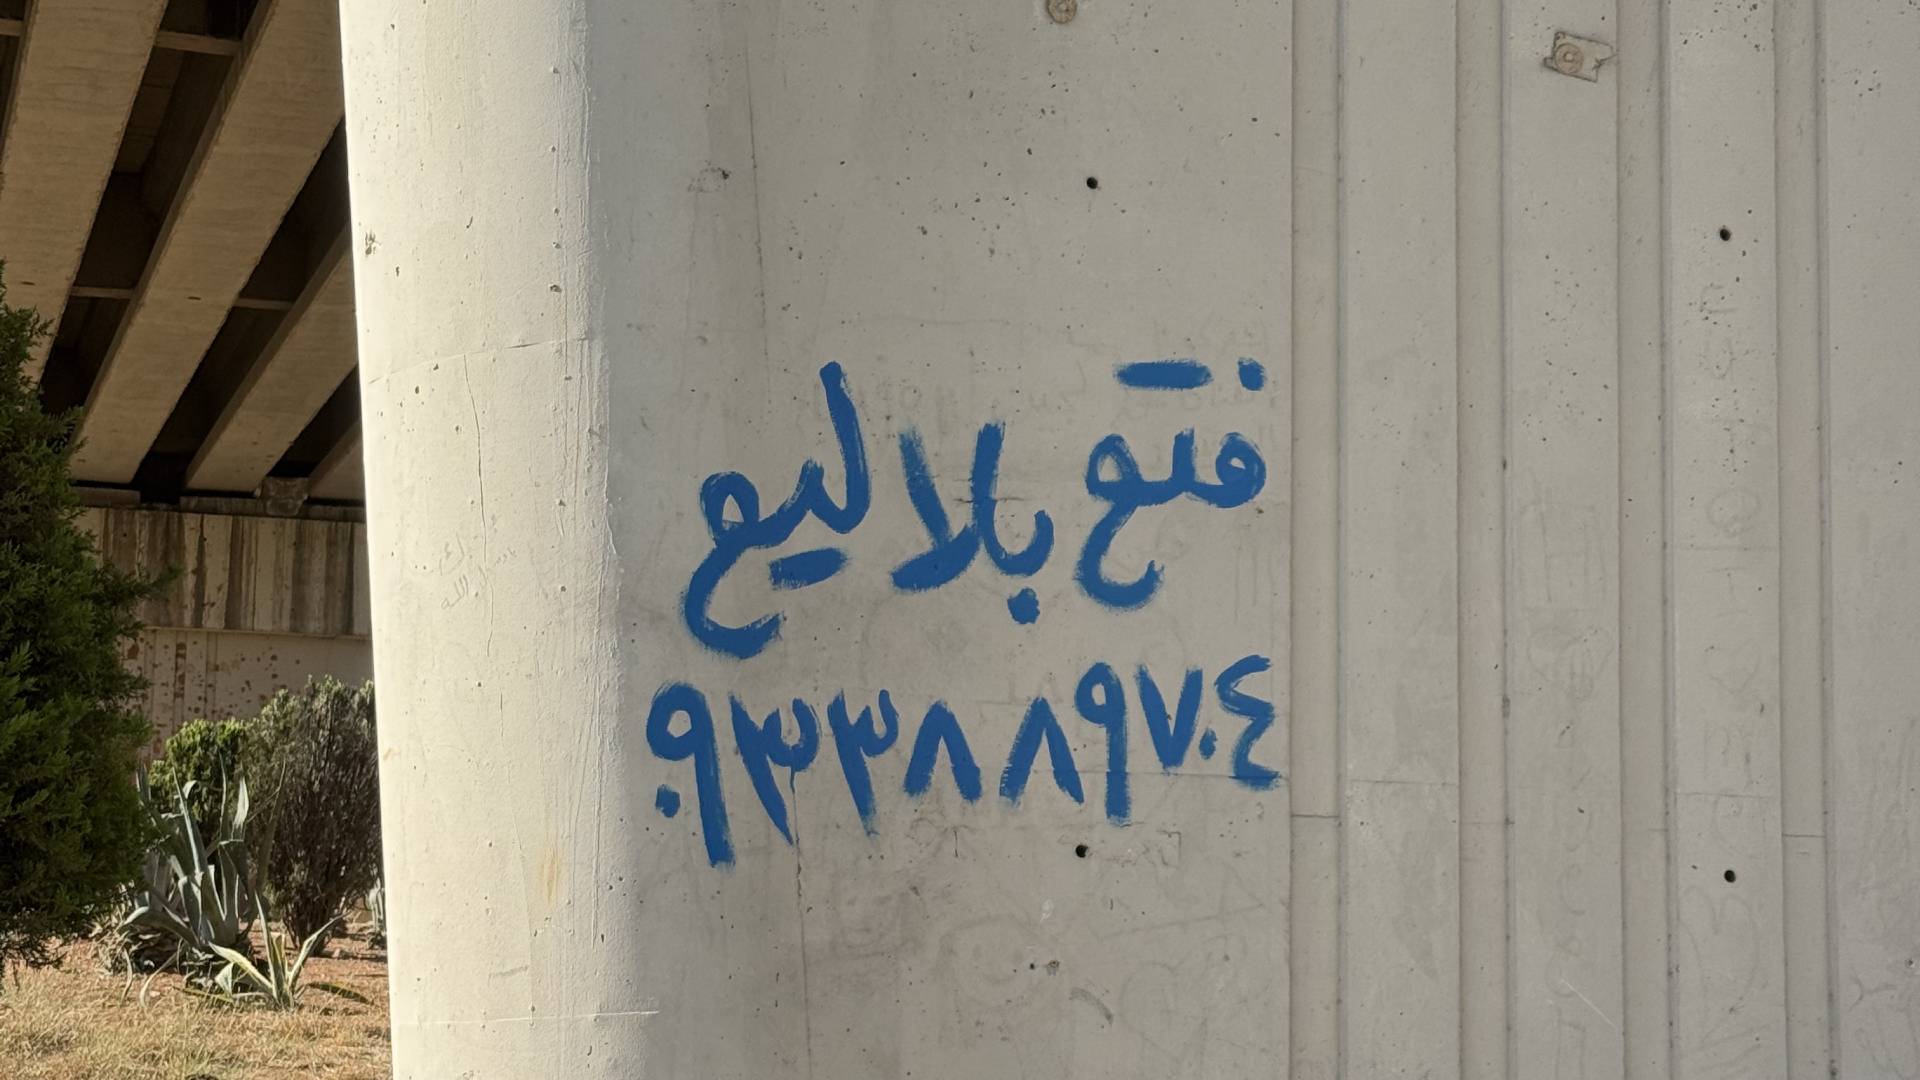 فتح بلاليع
٠٩٣٣٨٨٩٧٠٤